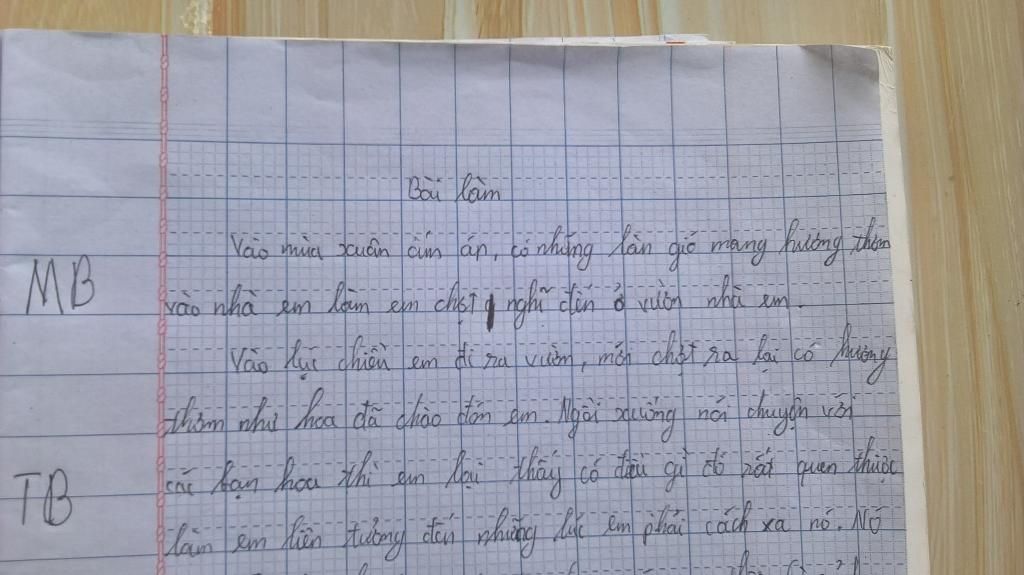 Bài làm
Vào mùa xuân ấm áp, có những làn gió mang hương thơm
MB
vào nhà em làm em chợt nghĩ đến ở vườn nhà em.
Vào lục chiều em đi ra vườn, mới chợt ra lại có hương
thơm như hoa đã chào đón em. Ngồi xuống nói chuyện với
TB
các bạn hoa thì em lại thấy có điều gì đó rất quen thuộc
làm em liên tưởng đến những lúc em phải cách xa nó. Nó